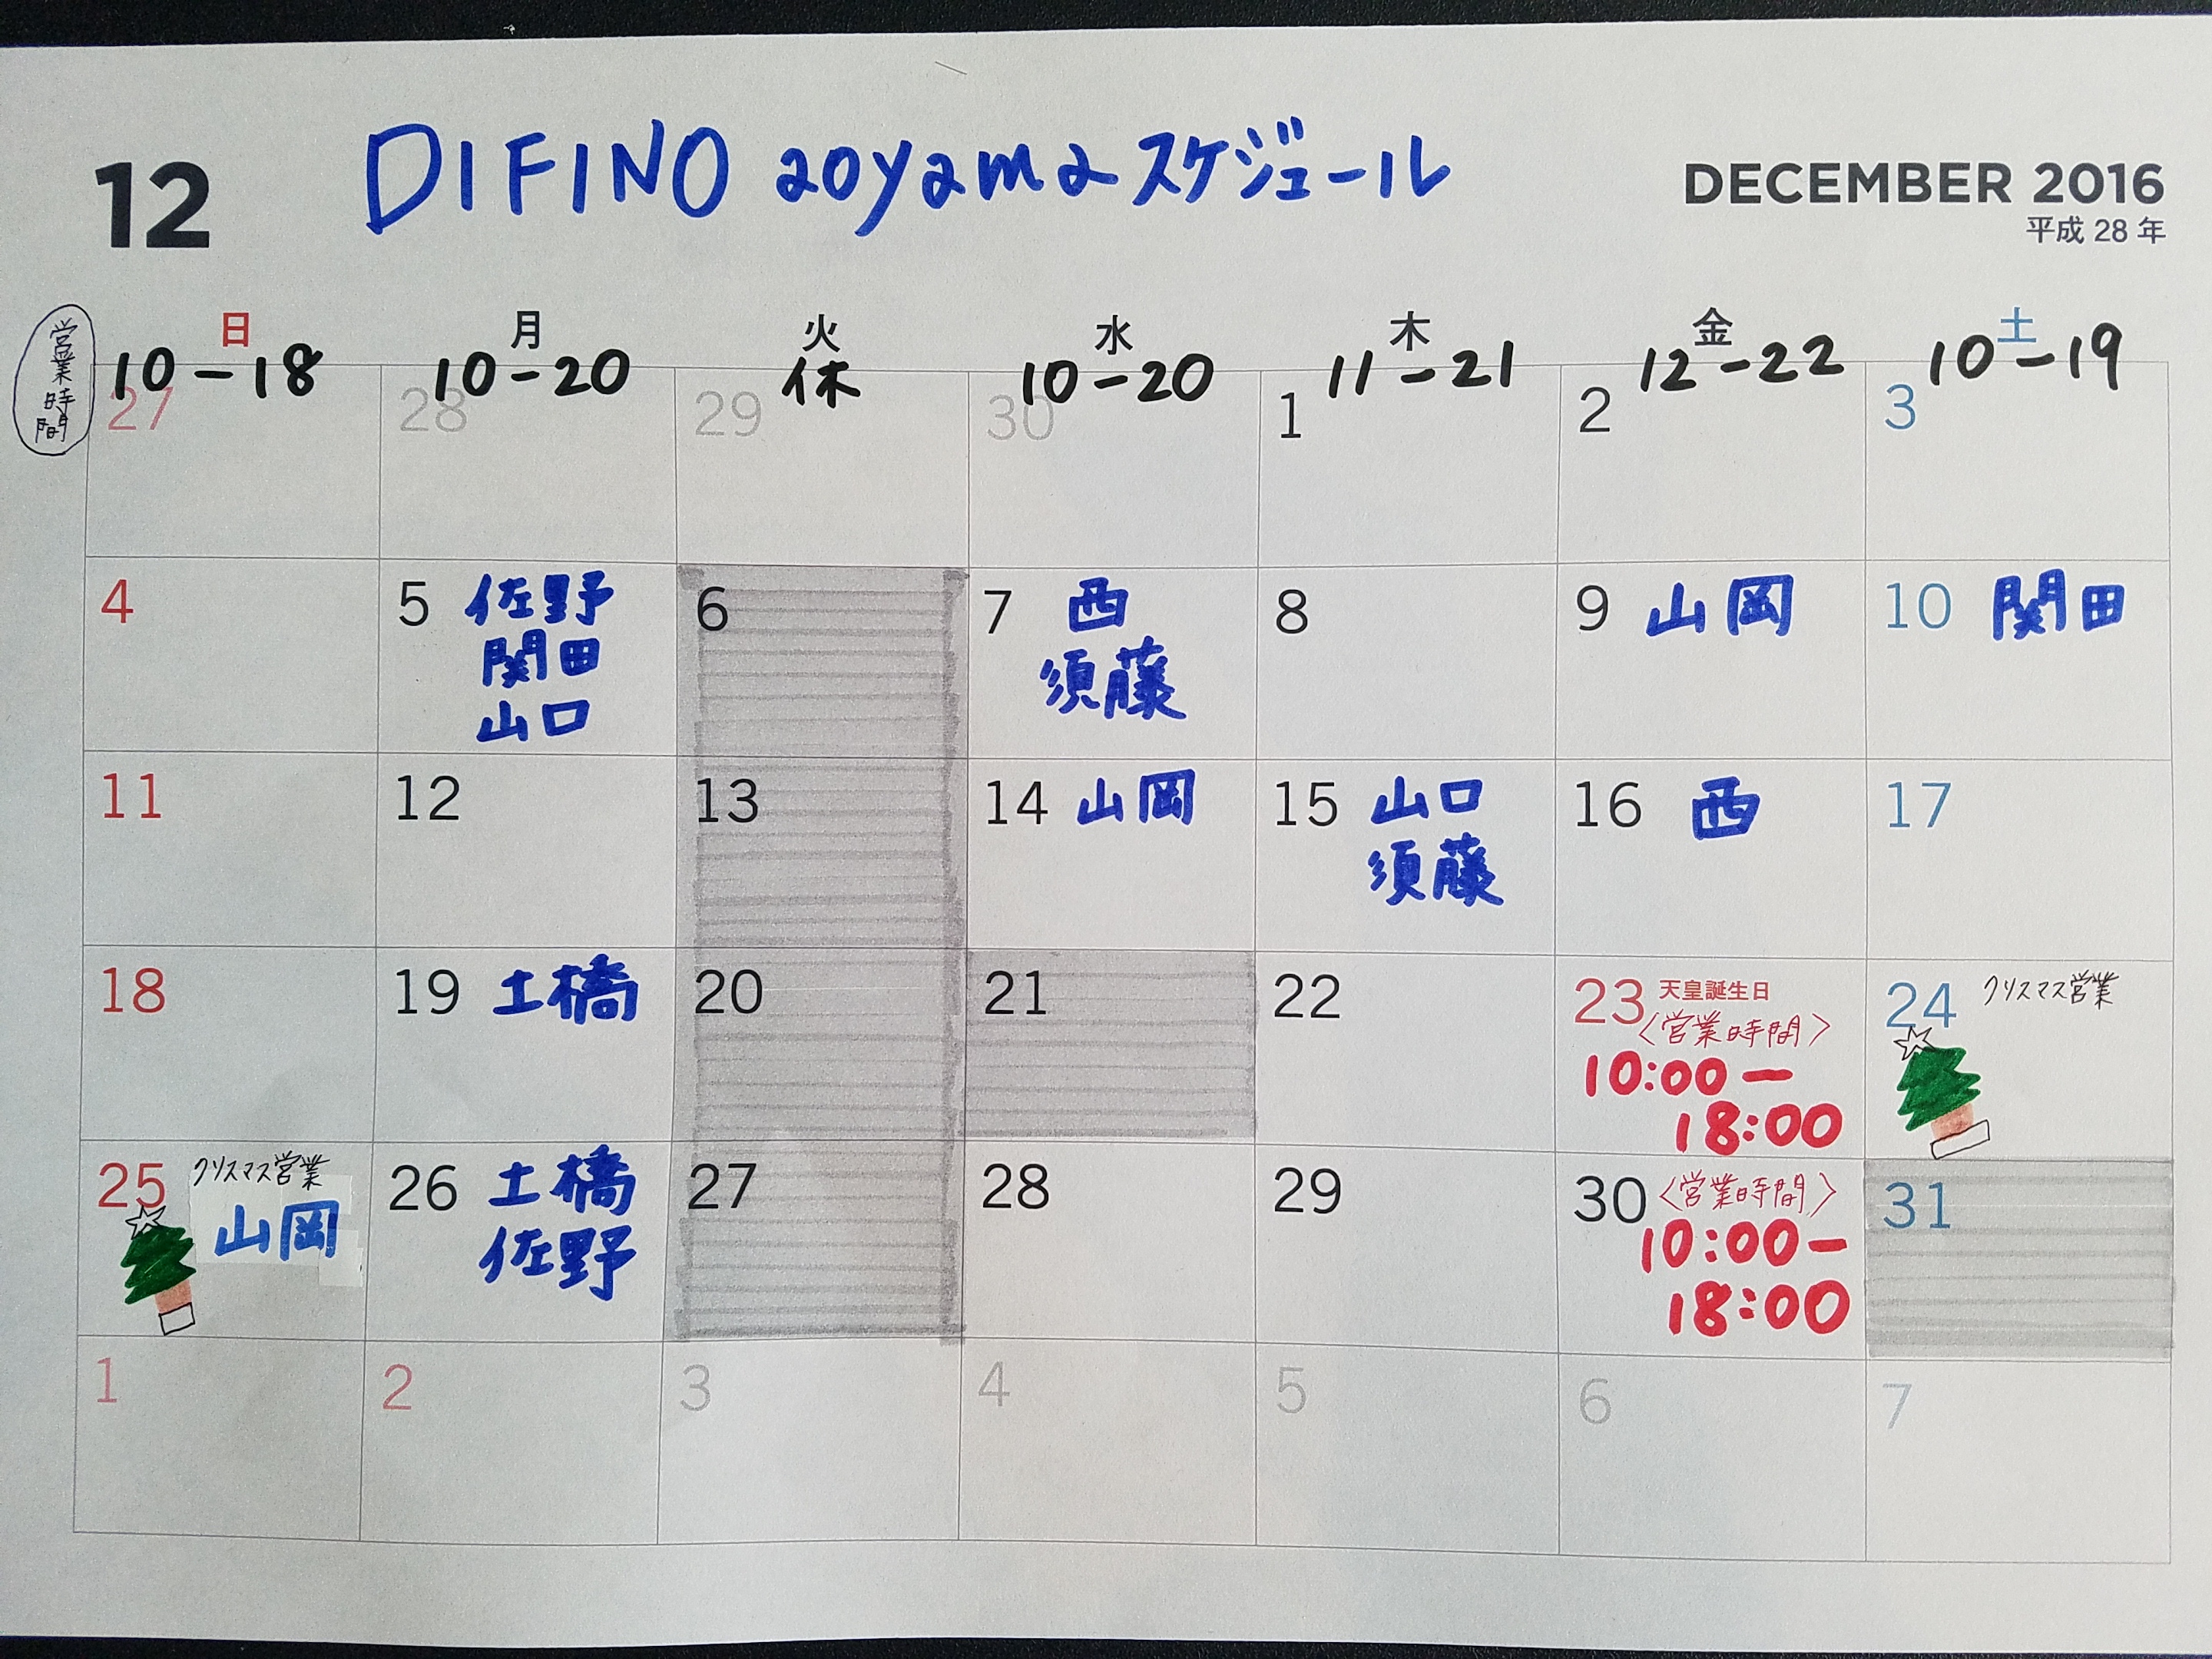 12
DIFINO aoyamaスケジュール
DECEMBER 2016
平成 28 年
営業時間
日 月 火 水 木 金 土
10-18 10-20 休 10-20 11-21 12-22 10-19
27 28 29 30 1 2 3
4
5 佐野
関田
山口
6
7 西
須藤
8
9 山岡
10 関田
11
12
13
14 山岡
15 山口
須藤
16 西
17
18
19 土橋
20
21
22
23 天皇誕生日
〈営業時間〉
10:00-
18:00
24 クリスマス営業
25 クリスマス営業
山岡
26 土橋
佐野
27
28
29
30 〈営業時間〉
10:00-
18:00
31
1 2 3 4 5 6 7